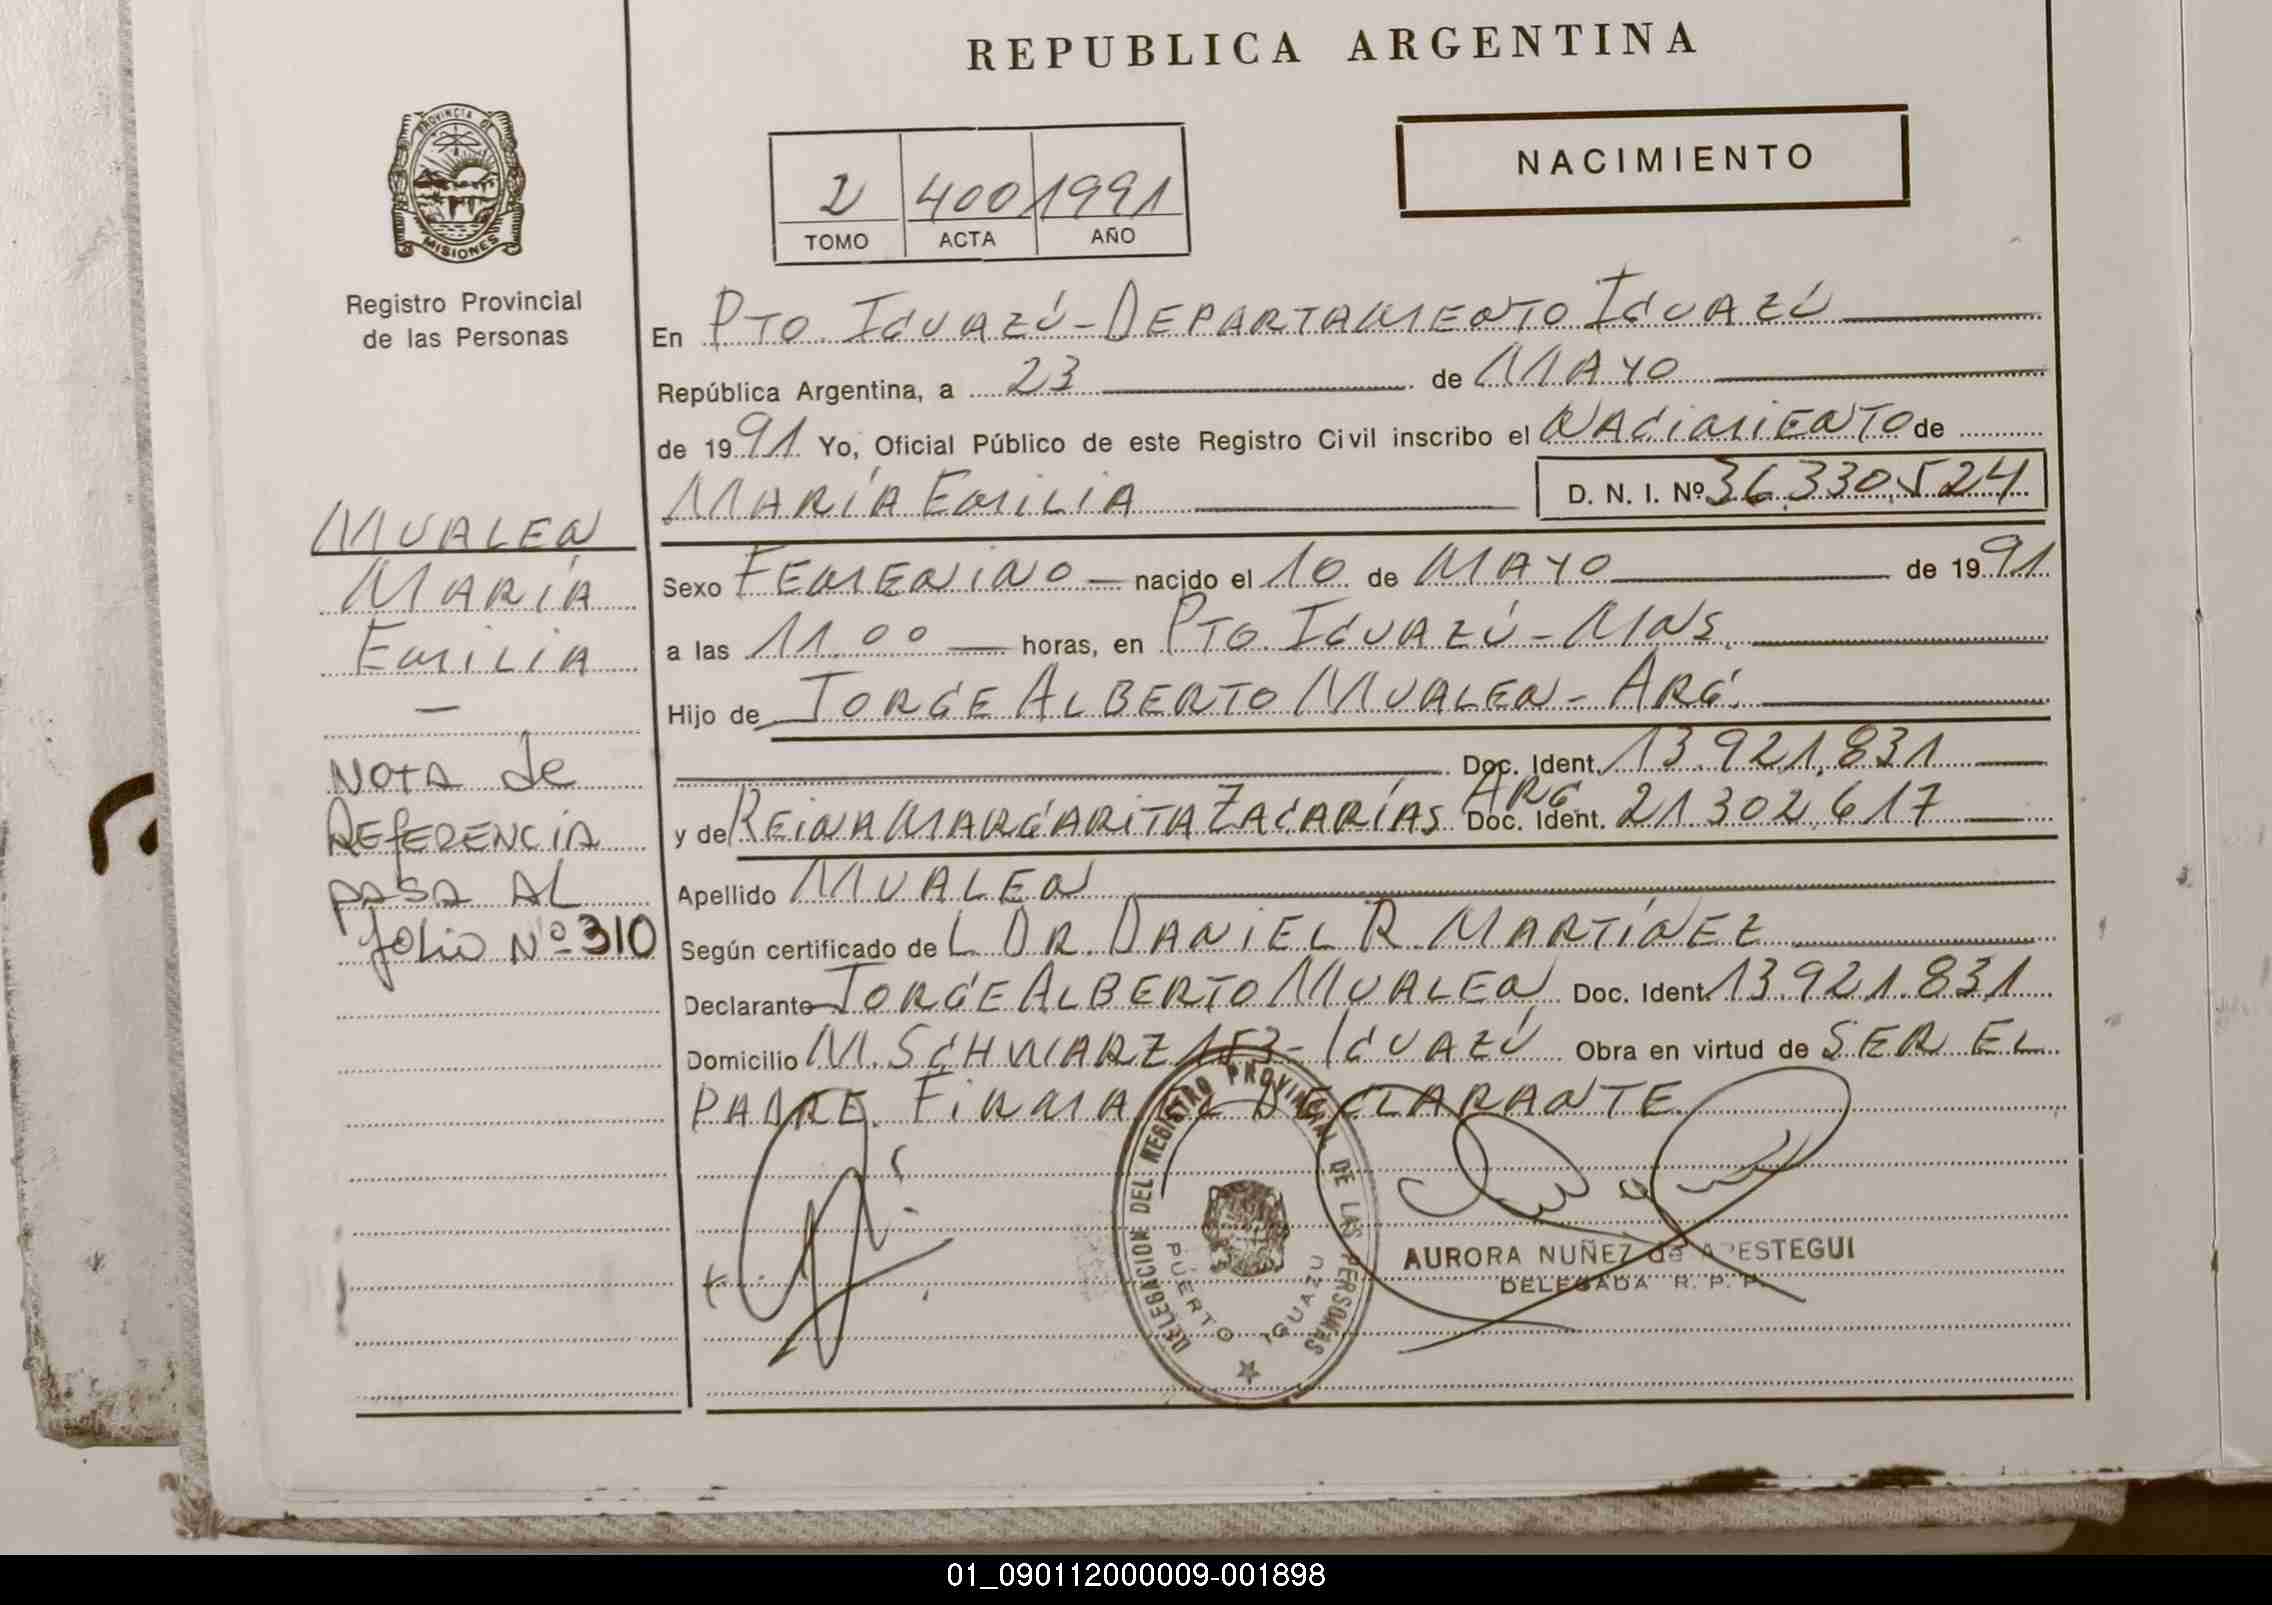 REPUBLICA ARGENTINA
PROVINCIA DE
MISIONES
Registro Provincial
de las Personas
2 400 1991
TOMO ACTA AÑO
NACIMIENTO
En PTO. IGUAZÚ - DEPARTAMENTO IGUAZÚ
República Argentina, a 23 de MAYO
de 1991 Yo, Oficial Público de este Registro Civil inscribo el NACIMIENTO de
MARÍA EMILIA D. N. I. Nº 36.330.524
Sexo FEMENINO - nacido el 10 de MAYO de 1991
a las 11.00 horas, en PTO. IGUAZÚ - MNS.
Hijo de JORGE ALBERTO MUALEN - ARG.
Doc. Ident. 13.921.831
ARG.
y de REINA MARGARITA ZACARÍAS Doc. Ident. 21.302.617
Apellido MUALEN
Según certificado de L DR. DANIEL R. MARTÍNEZ
Declarante JORGE ALBERTO MUALEN Doc. Ident. 13.921.831
Domicilio M. SCHWARZ 153 - IGUAZÚ Obra en virtud de SER EL
PADRE. FIRMA EL DECLARANTE
MUALEN
MARÍA
EMILIA
—
NOTA de
REFERENCIA
PASA AL
folio Nº 310
DELEGACION DEL REGISTRO PROVINCIAL DE LAS PERSONAS
PUERTO IGUAZU
AURORA NUÑEZ de APESTEGUI
DELEGADA R. P. P.
01_090112000009-001898